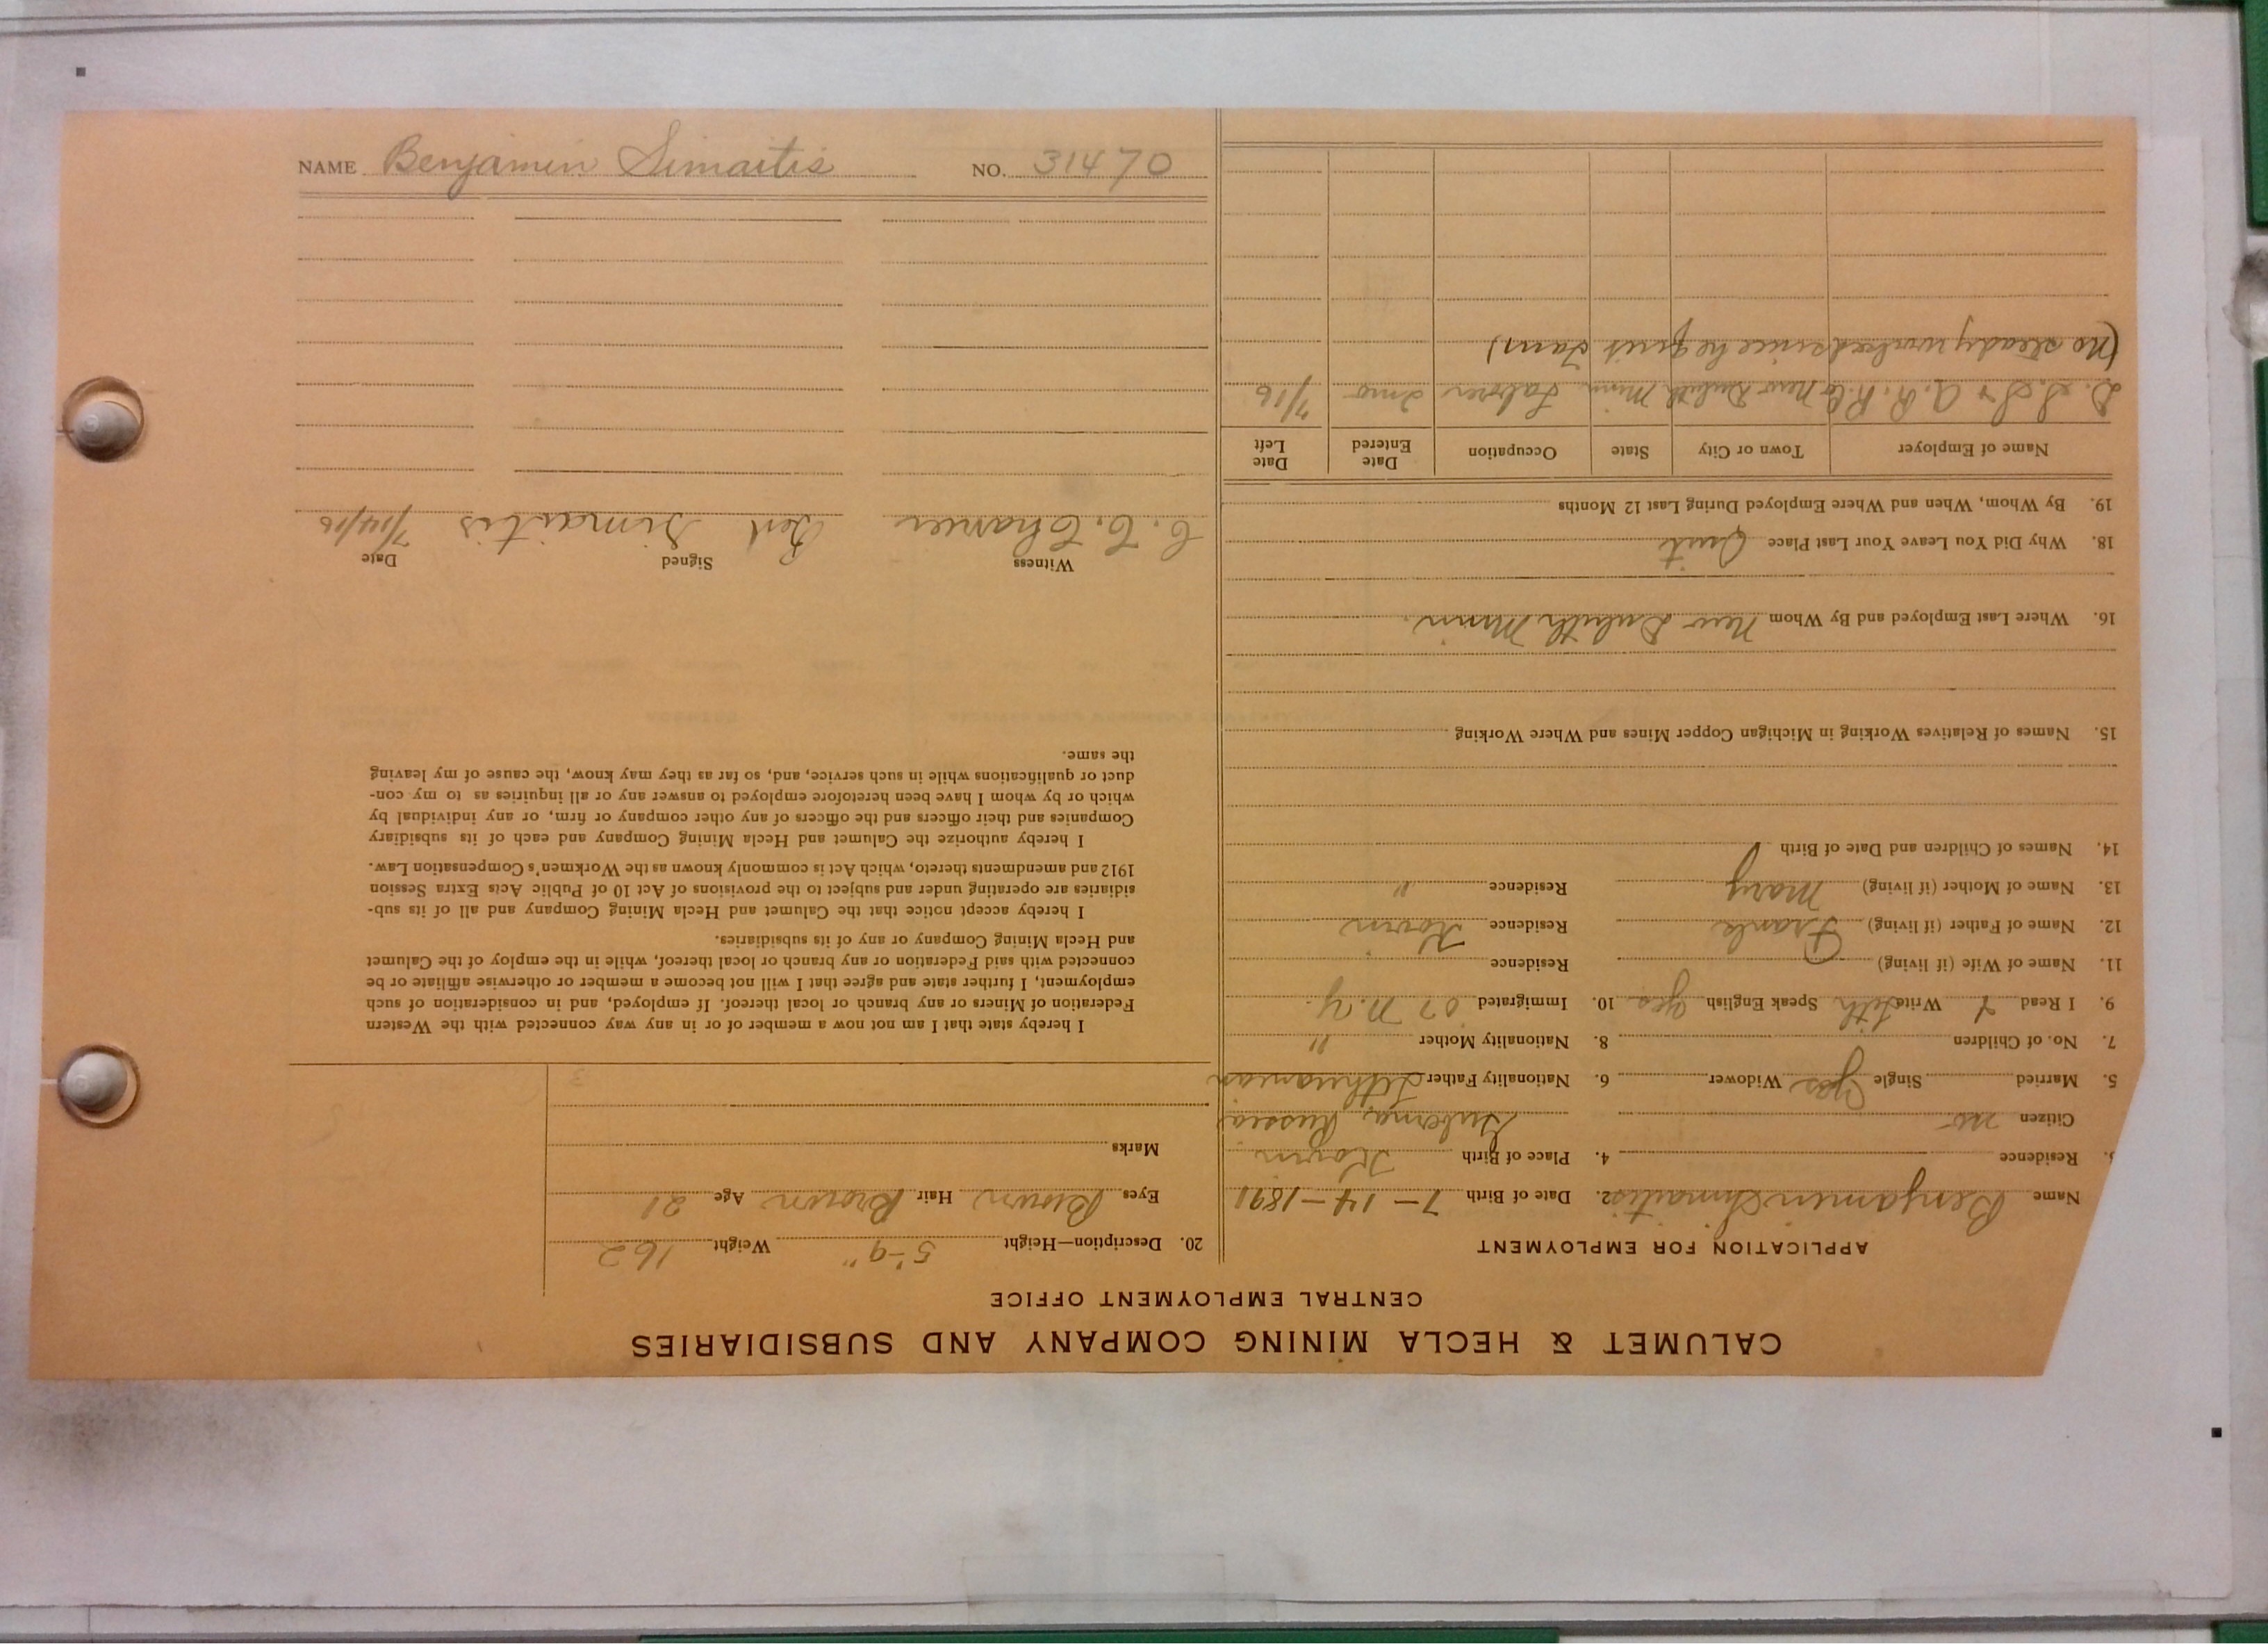 CALUMET & HECLA MINING COMPANY AND SUBSIDIARIES
CENTRAL EMPLOYMENT OFFICE
APPLICATION FOR EMPLOYMENT
Name Benjamin Simaitis 2. Date of Birth 7-14-1891
Residence 4. Place of Birth Kovin
Citizen no Guberna, Russia
5. Married Single yes Widower 6. Nationality Father Lithuanian
7. No. of Children 8. Nationality Mother "
9. I Read & Write Lith Speak English yes 10. Immigrated 07 N.Y.
11. Name of Wife (if living) Residence
12. Name of Father (if living) Frank Residence Kovin
13. Name of Mother (if living) Mary Residence "
14. Names of Children and Date of Birth
15. Names of Relatives Working in Michigan Copper Mines and Where Working
16. Where Last Employed and By Whom New Duluth Minn.
18. Why Did You Leave Your Last Place Quit
19. By Whom, When and Where Employed During Last 12 Months
Name of Employer Town or City State Occupation Date Entered Date Left
D. S. S. & A. R. R. Co New Duluth Minn Laborer 2 mo 7/16
(No steady worked since he quit
20. Description—Height 5'-9" Weight 162
Eyes Brown Hair Brown Age 21
Marks
I hereby state that I am not now a member of or in any way connected with the Western
Federation of Miners or any branch or local thereof. If employed, and in consideration of such
employment, I further state and agree that I will not become a member or otherwise affiliate or be
connected with said Federation or any branch or local thereof, while in the employ of the Calumet
and Hecla Mining Company or any of its subsidiaries.
I hereby accept notice that the Calumet and Hecla Mining Company and all of its sub-
sidiaries are operating under and subject to the provisions of Act 10 of Public Acts Extra Session
1912 and amendments thereto, which Act is commonly known as the Workmen's Compensation Law.
I hereby authorize the Calumet and Hecla Mining Company and each of its subsidiary
Companies and their officers and the officers of any other company or firm, or any individual by
which or by whom I have been heretofore employed to answer any or all inquiries as to my con-
duct or qualifications while in such service, and, so far as they may know, the cause of my leaving
the same.
Witness Signed Date
Simaitis 7/14/16
NAME Benjamin Simaitis NO. 31470